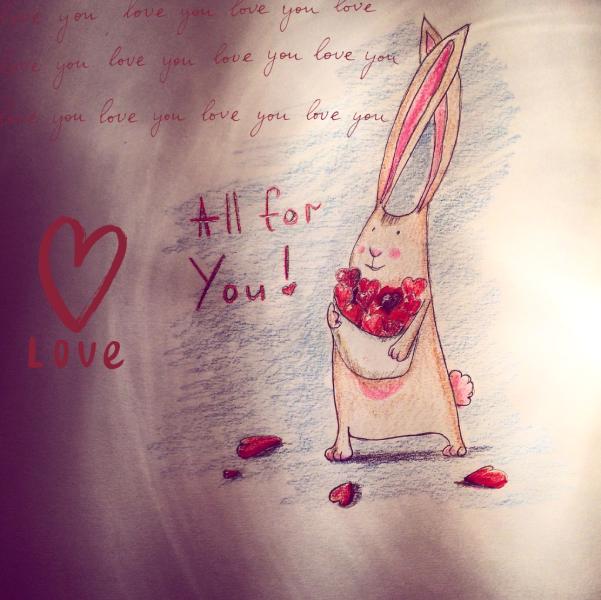 love you love you love you love
love you love you love you love you
love you love you love you love you
All for
You!
Love